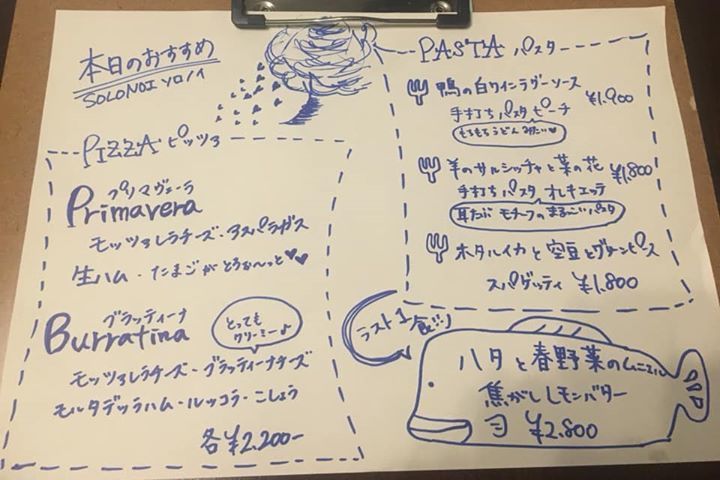 本日のおすすめ
SOLONOI ソロノイ
PIZZA ピッツァ
プリマヴェーラ
Primavera
モッツァレラチーズ・アスパラガス
生ハム・たまごがとろぉ〜っと♥♥
ブラッティーナ
Burratina
とっても
クリーミー♪
モッツァレラチーズ・ブラッティーナチーズ
モルタデッラハム・ルッコラ・こしょう
各¥2,200-
PASTA パスター
鴨の白ワインラグーソース
手打ちパスタピーチ ¥1,900
もちもちうどんみたい♥
羊のサルシッチャと菜の花 ¥1,800
手打ちパスタ オレキエッテ
耳たぶモチーフのまぁるーいパスタ
ホタルイカと空豆とグリーンピース
スパゲッティ ¥1,800
ラスト1
ハタと春野菜のムニエル
焦がしレモンバター
¥2,800